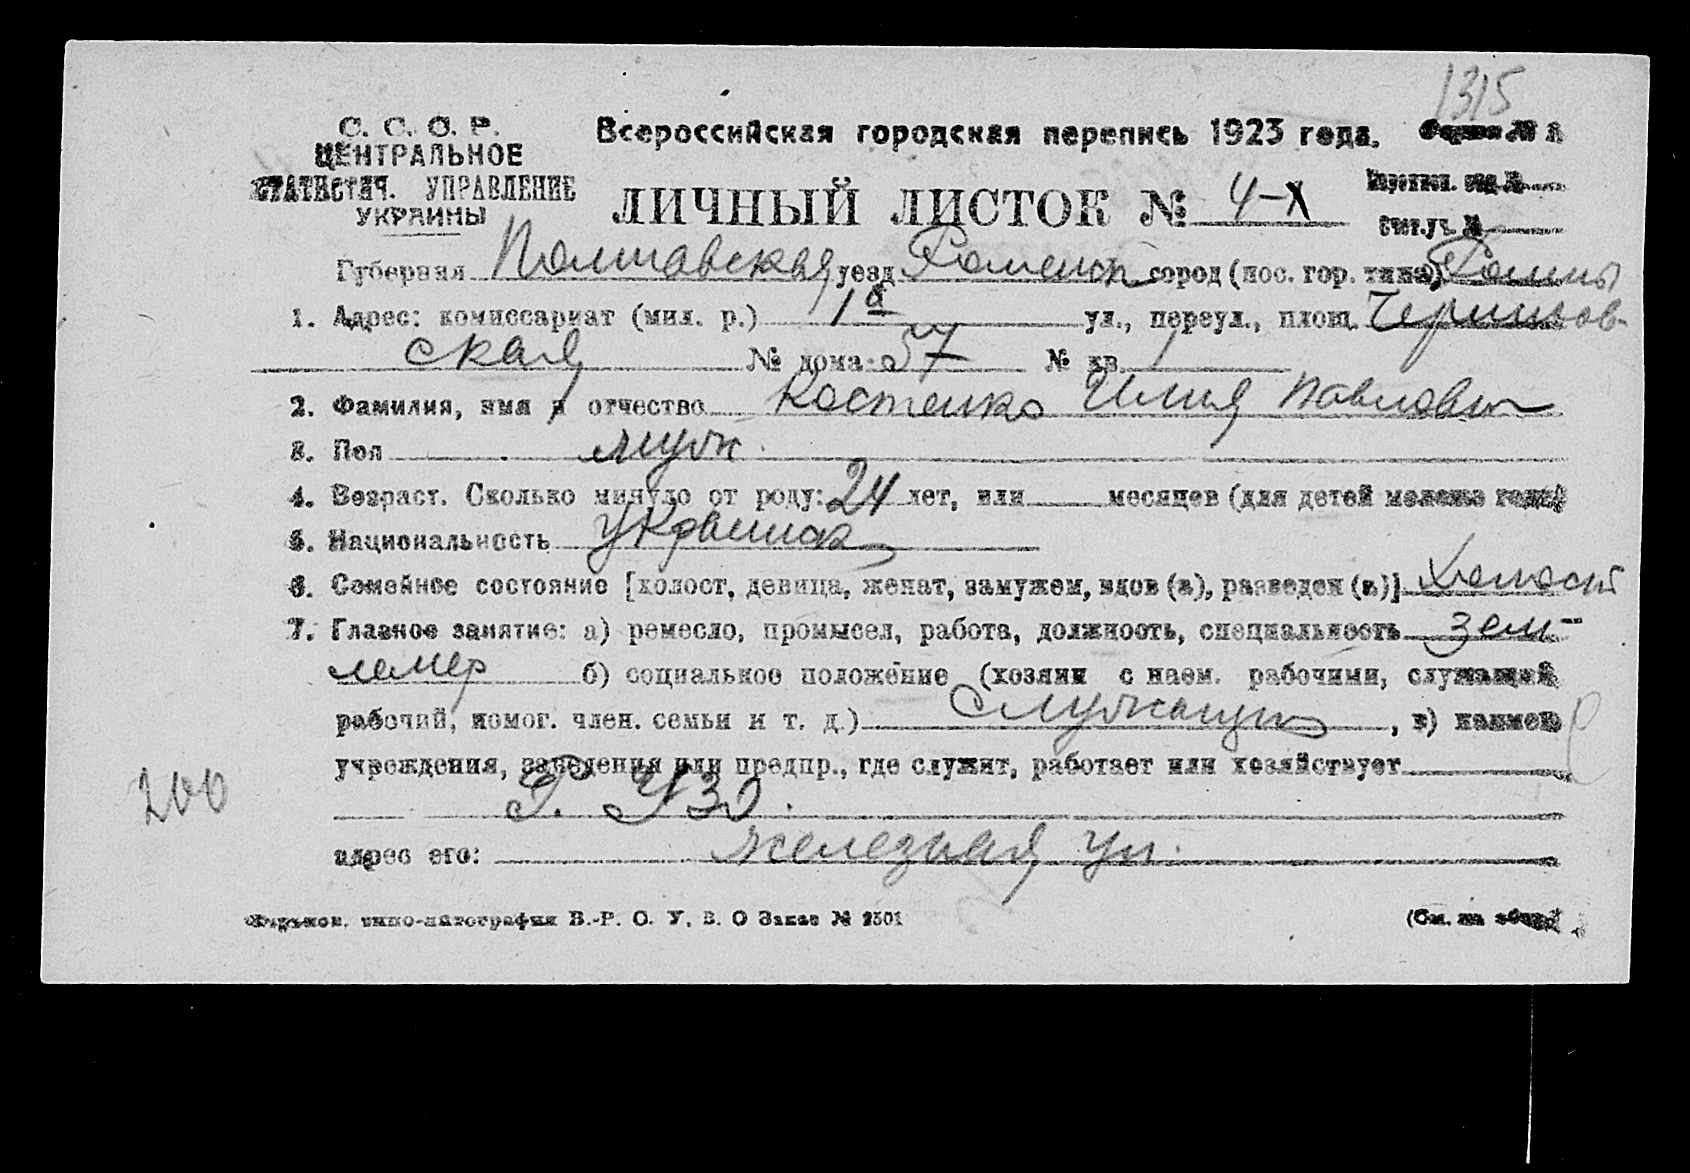 1315
С. С. С. Р.
ЦЕНТРАЛЬНОЕ
СТАТИСТИЧ. УПРАВЛЕНИЕ
УКРАИНЫ
Всероссийская городская перепись 1923 года.
ЛИЧНЫЙ ЛИСТОК № 4-X
Стат.уч. №
Губерния Полтавская уезд Роменск город (пос. гор. типа) Ромны
1. Адрес: комиссариат (мил. р.) 1й ул., переул., площ. Чернигов-
ская № дома 57 № кв. 1
2. Фамилия, имя и отчество Костенко Илия Павлович
3. Пол муж.
4. Возраст. Сколько минуло от роду: 24 лет, или месяцев (для детей моложе года)
5. Национальность Украинец
6. Семейное состояние [холост, девица, женат, замужем, вдов (а), разведен (а)] Холост
7. Главное занятие: а) ремесло, промысел, работа, должность, специальность зем-
лемер б) социальное положение (хозяин с наем. рабочими, служащий
рабочий, помог. член. семьи и т. д.) Служащий, в) наимен
учреждения, заведения или предпр., где служит, работает или хозяйствует
Р. УЗО.
200
адрес его: железная ул.
Харьков. типо-литография В.-Р. О. У. В. О Заказ № 2501
(См. на обор.)